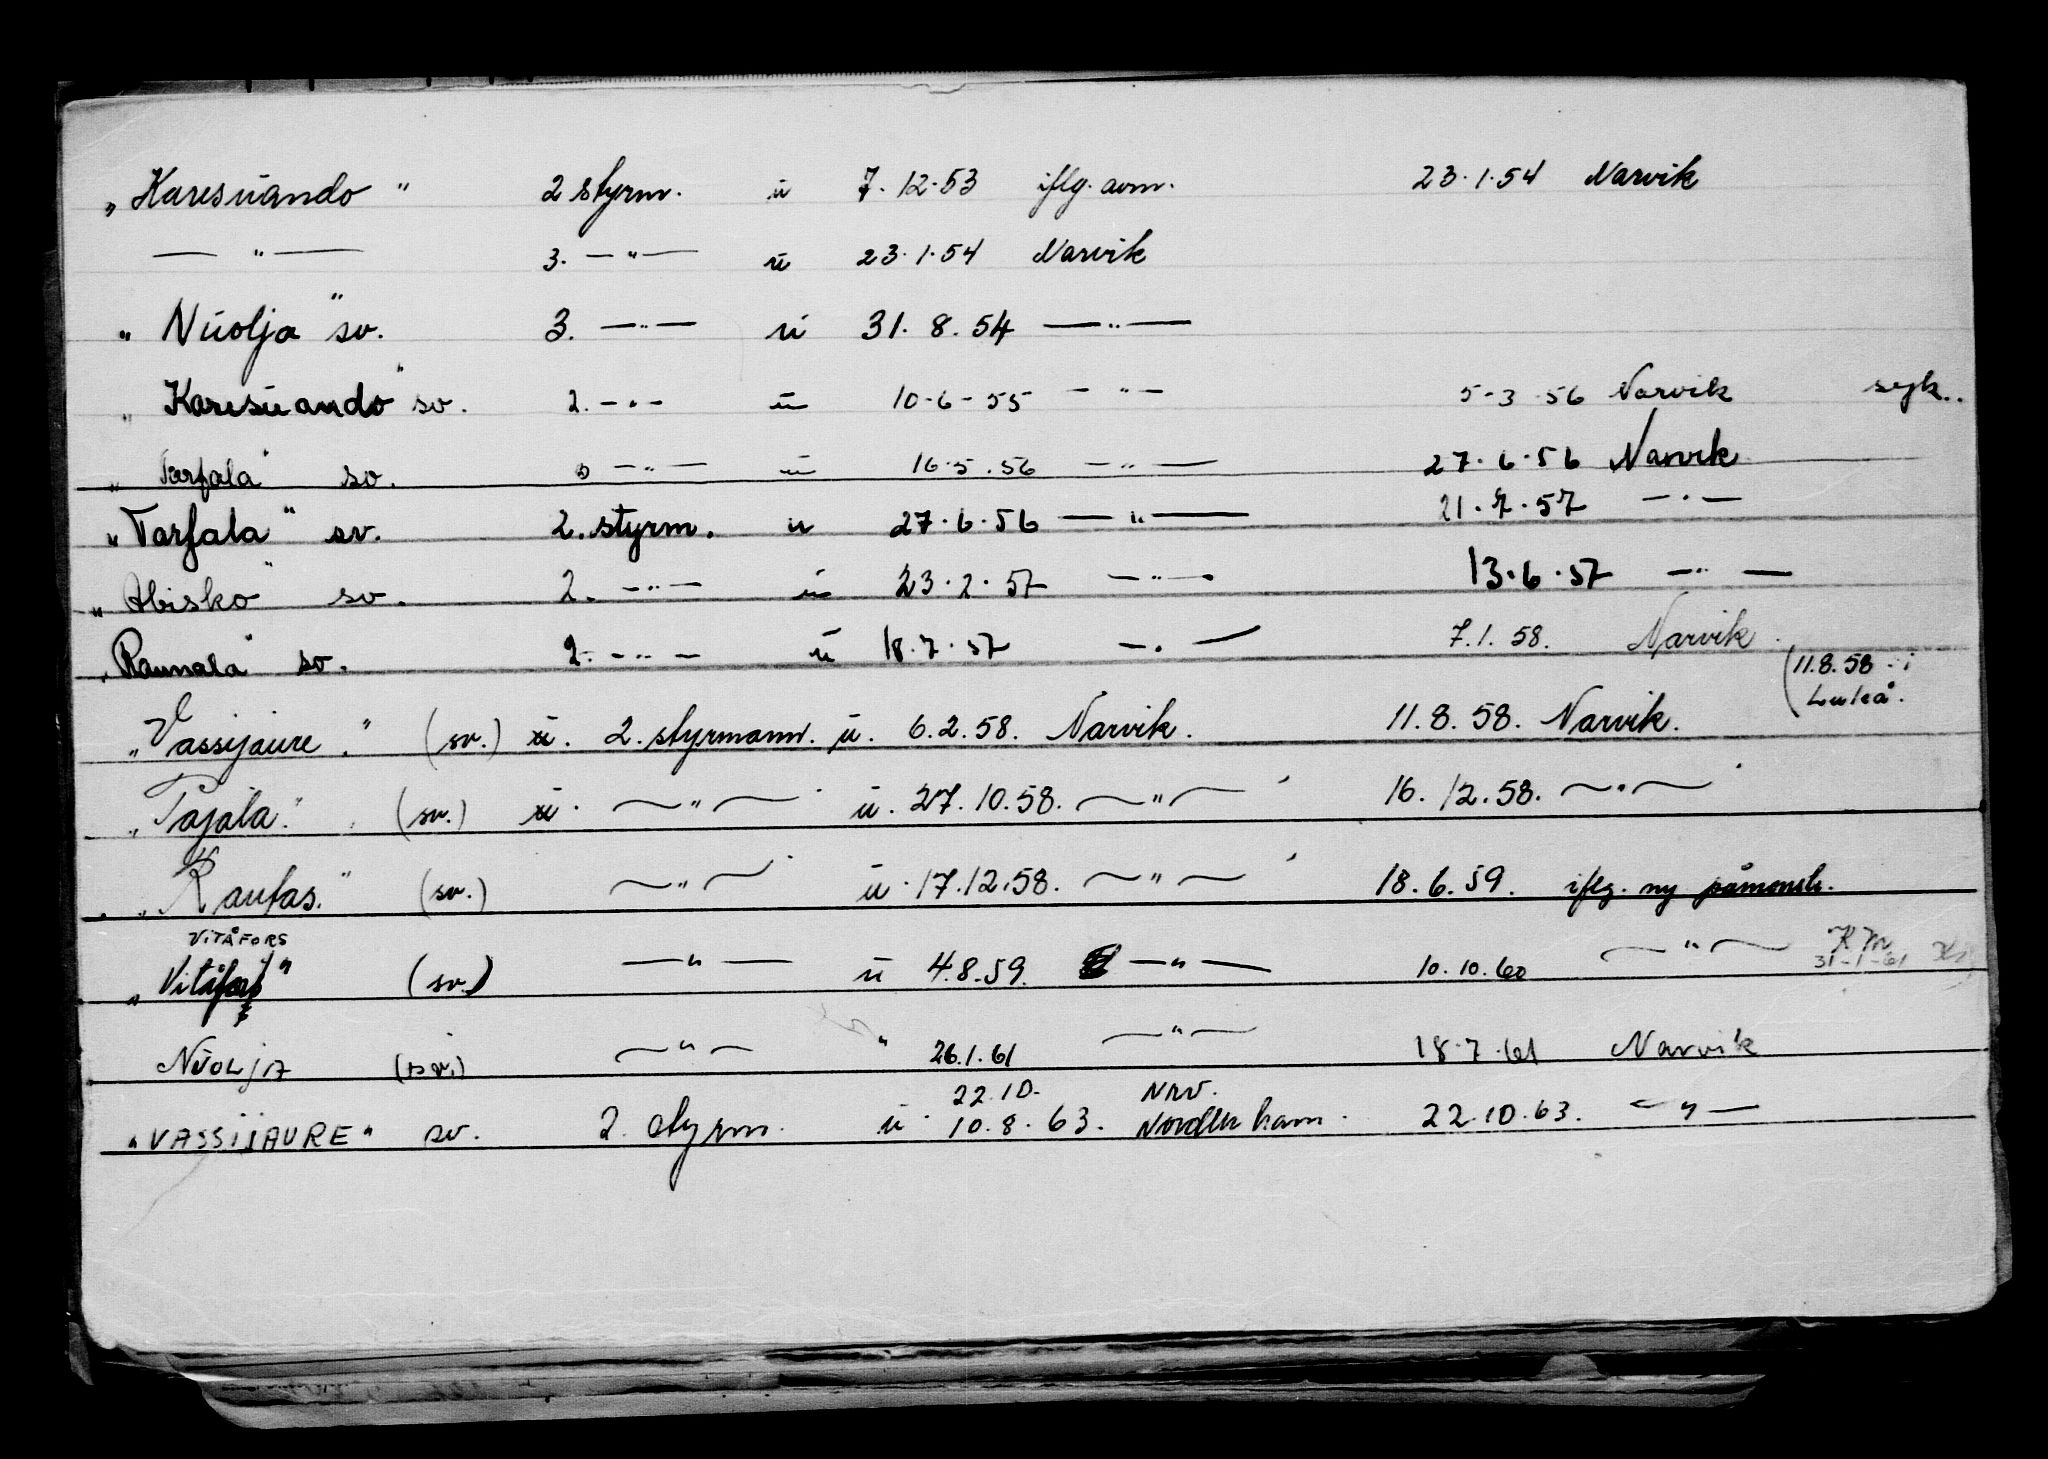 „Karesuando" 2 styrm. u 7.12.53 iflg. anm. 23.1.54 Narvik
— " — 3. — " — u 23.1.54 Narvik
„Nuolja" sv. 3. — " — u 31.8.54 — " —
„Karesuando" sv. 2. — " — u 10-6-55 — " — 5-3-56 Narvik syk..
„Tarfala" sv. — " — u 16.5.56 — " — 27.6.56 Narvik
„Tarfala" sv. 2. styrm. u 27.6.56 — " — 21.2.57 — " —
„Abisko" sv. 2. — " — u 23.2.57 — " — 13.6.57 — " —
„Raunala" sv. 2. — " — u 18.7.57 — " — 7.1.58. Narvik.
(11.8.58 i
Luleå.
„Vassijaure." (sv.) u. 2. styrmann. u. 6.2.58. Narvik. 11.8.58. Narvik.
„Pajala." (sv.) u. — " — u. 27.10.58. — " — 16.12.58. — " —
„Rautas." (sv.) — " — u. 17.12.58. — " — 18.6.59. iflg. ny påmønstr.
VITÅFORS
„Vitåfors" (sv.) — " — u 4.8.59. — " — 10.10.60 — " — 31-1-61
Nuolja (sv.) — " — " 26.1.61 — " — 18.7.61 Narvik
22.10. NRV.
„VASSIJAURE" sv. 2. styrm. u 10.8.63. Nordenham. 22.10.63. — " —